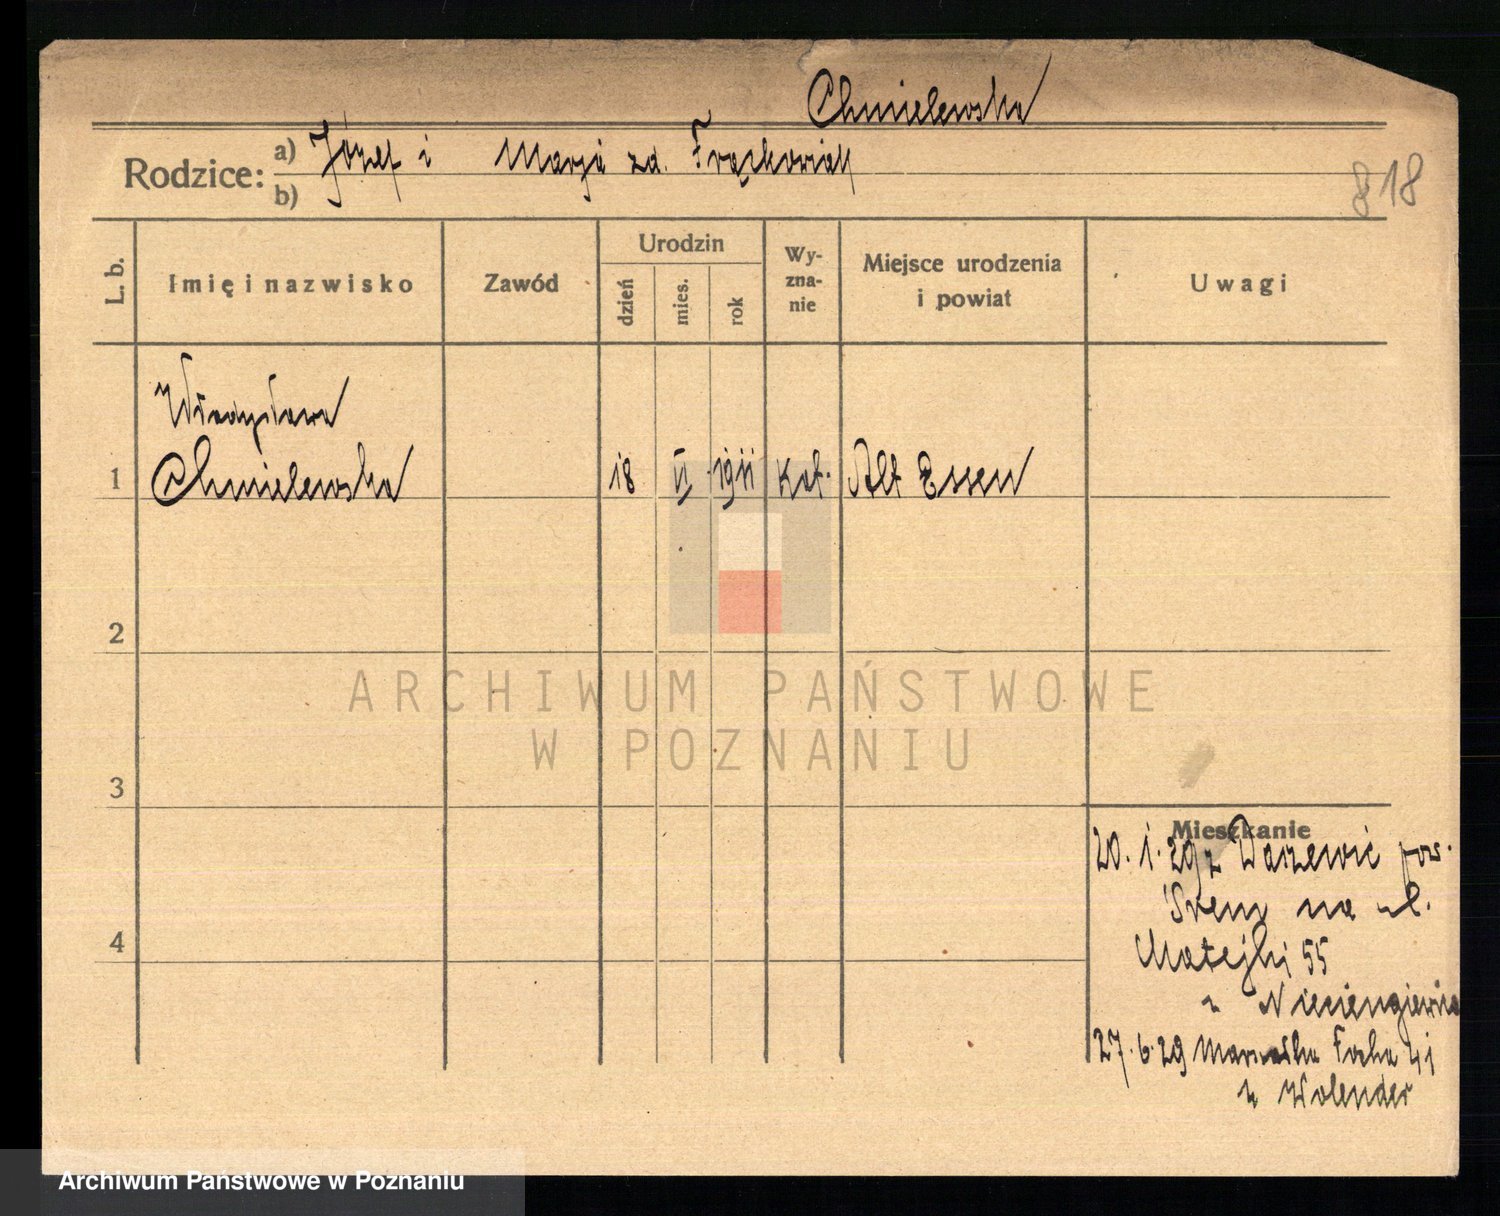 Chmielewska
Rodzice: a) Józef i Marja zd. Frąckowiak
b)
818
L. b. Imię i nazwisko Zawód Urodzin dzień mies. rok Wyznanie Miejsce urodzenia i powiat Uwagi
Władysława
1 Chmielewska 18 VI 1911 Kat. Alt Essen
2
ARCHIWUM PAŃSTWOWE
W POZNANIU
3
Mieszkanie
20. 1. 29 z Daszewic pow.
Śrem na ul.
Matejki 55
4
27. 6. 29 Marszałka Focha 41
Archiwum Państwowe w Poznaniu